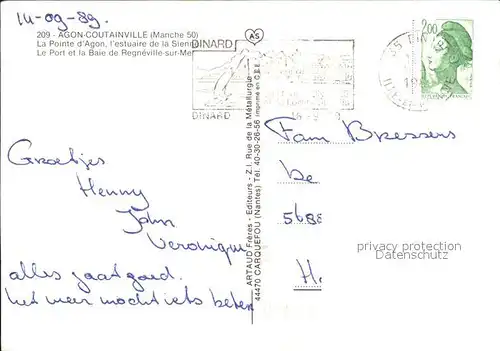 14-09-89.
209 - AGON-COUTAINVILLE (Manche 50)
La Pointe d'Agon, l'estuaire de la Sienne
Le Port et la Baie de Regnéville-sur-Mer
Groetjes
Henny
John
Veronique
alles gaat goed.
het weer mocht iets beter
ARTAUD Frères - Editeurs - Z.I. Rue de la Métallurgie
44470 CARQUEFOU (Nantes) Tél. 40-30-26-56 Imprimé en C.E.E.
AS
DINARD
DINARD
2,00
Fam Bressers
De
5688
H
privacy protection
Datenschutz